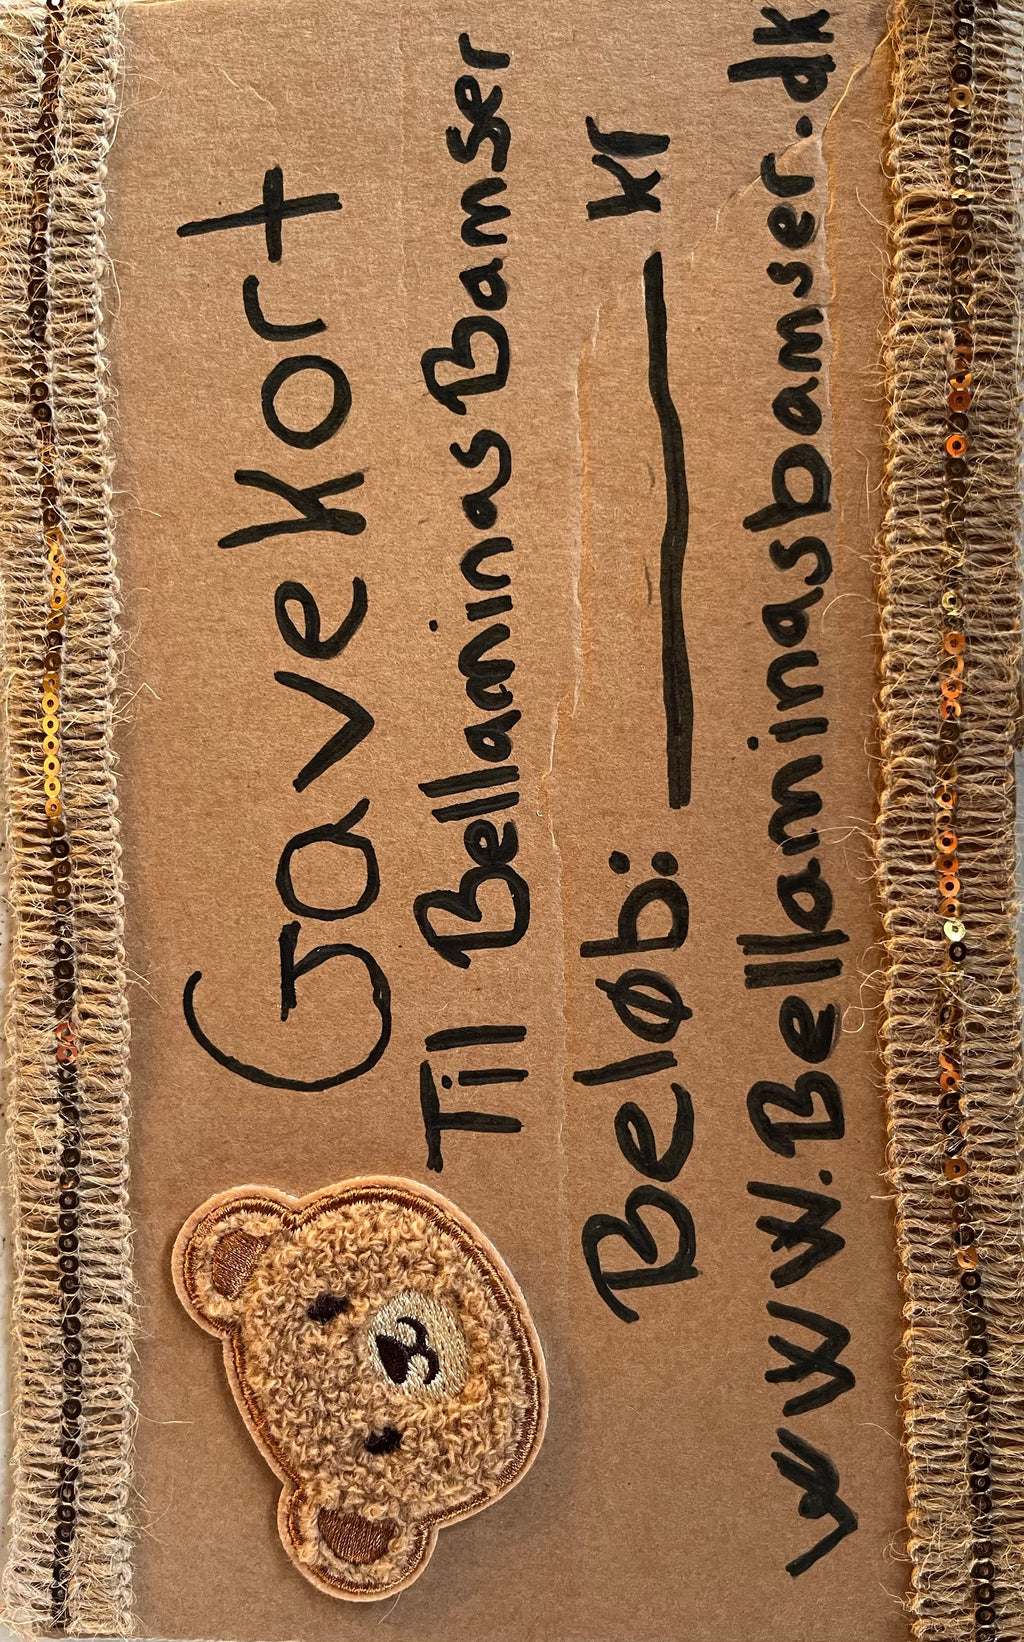 Gavekort
Til Bellaminas Bamser
Beløb: ______ kr
www.Bellaminasbamser.dk